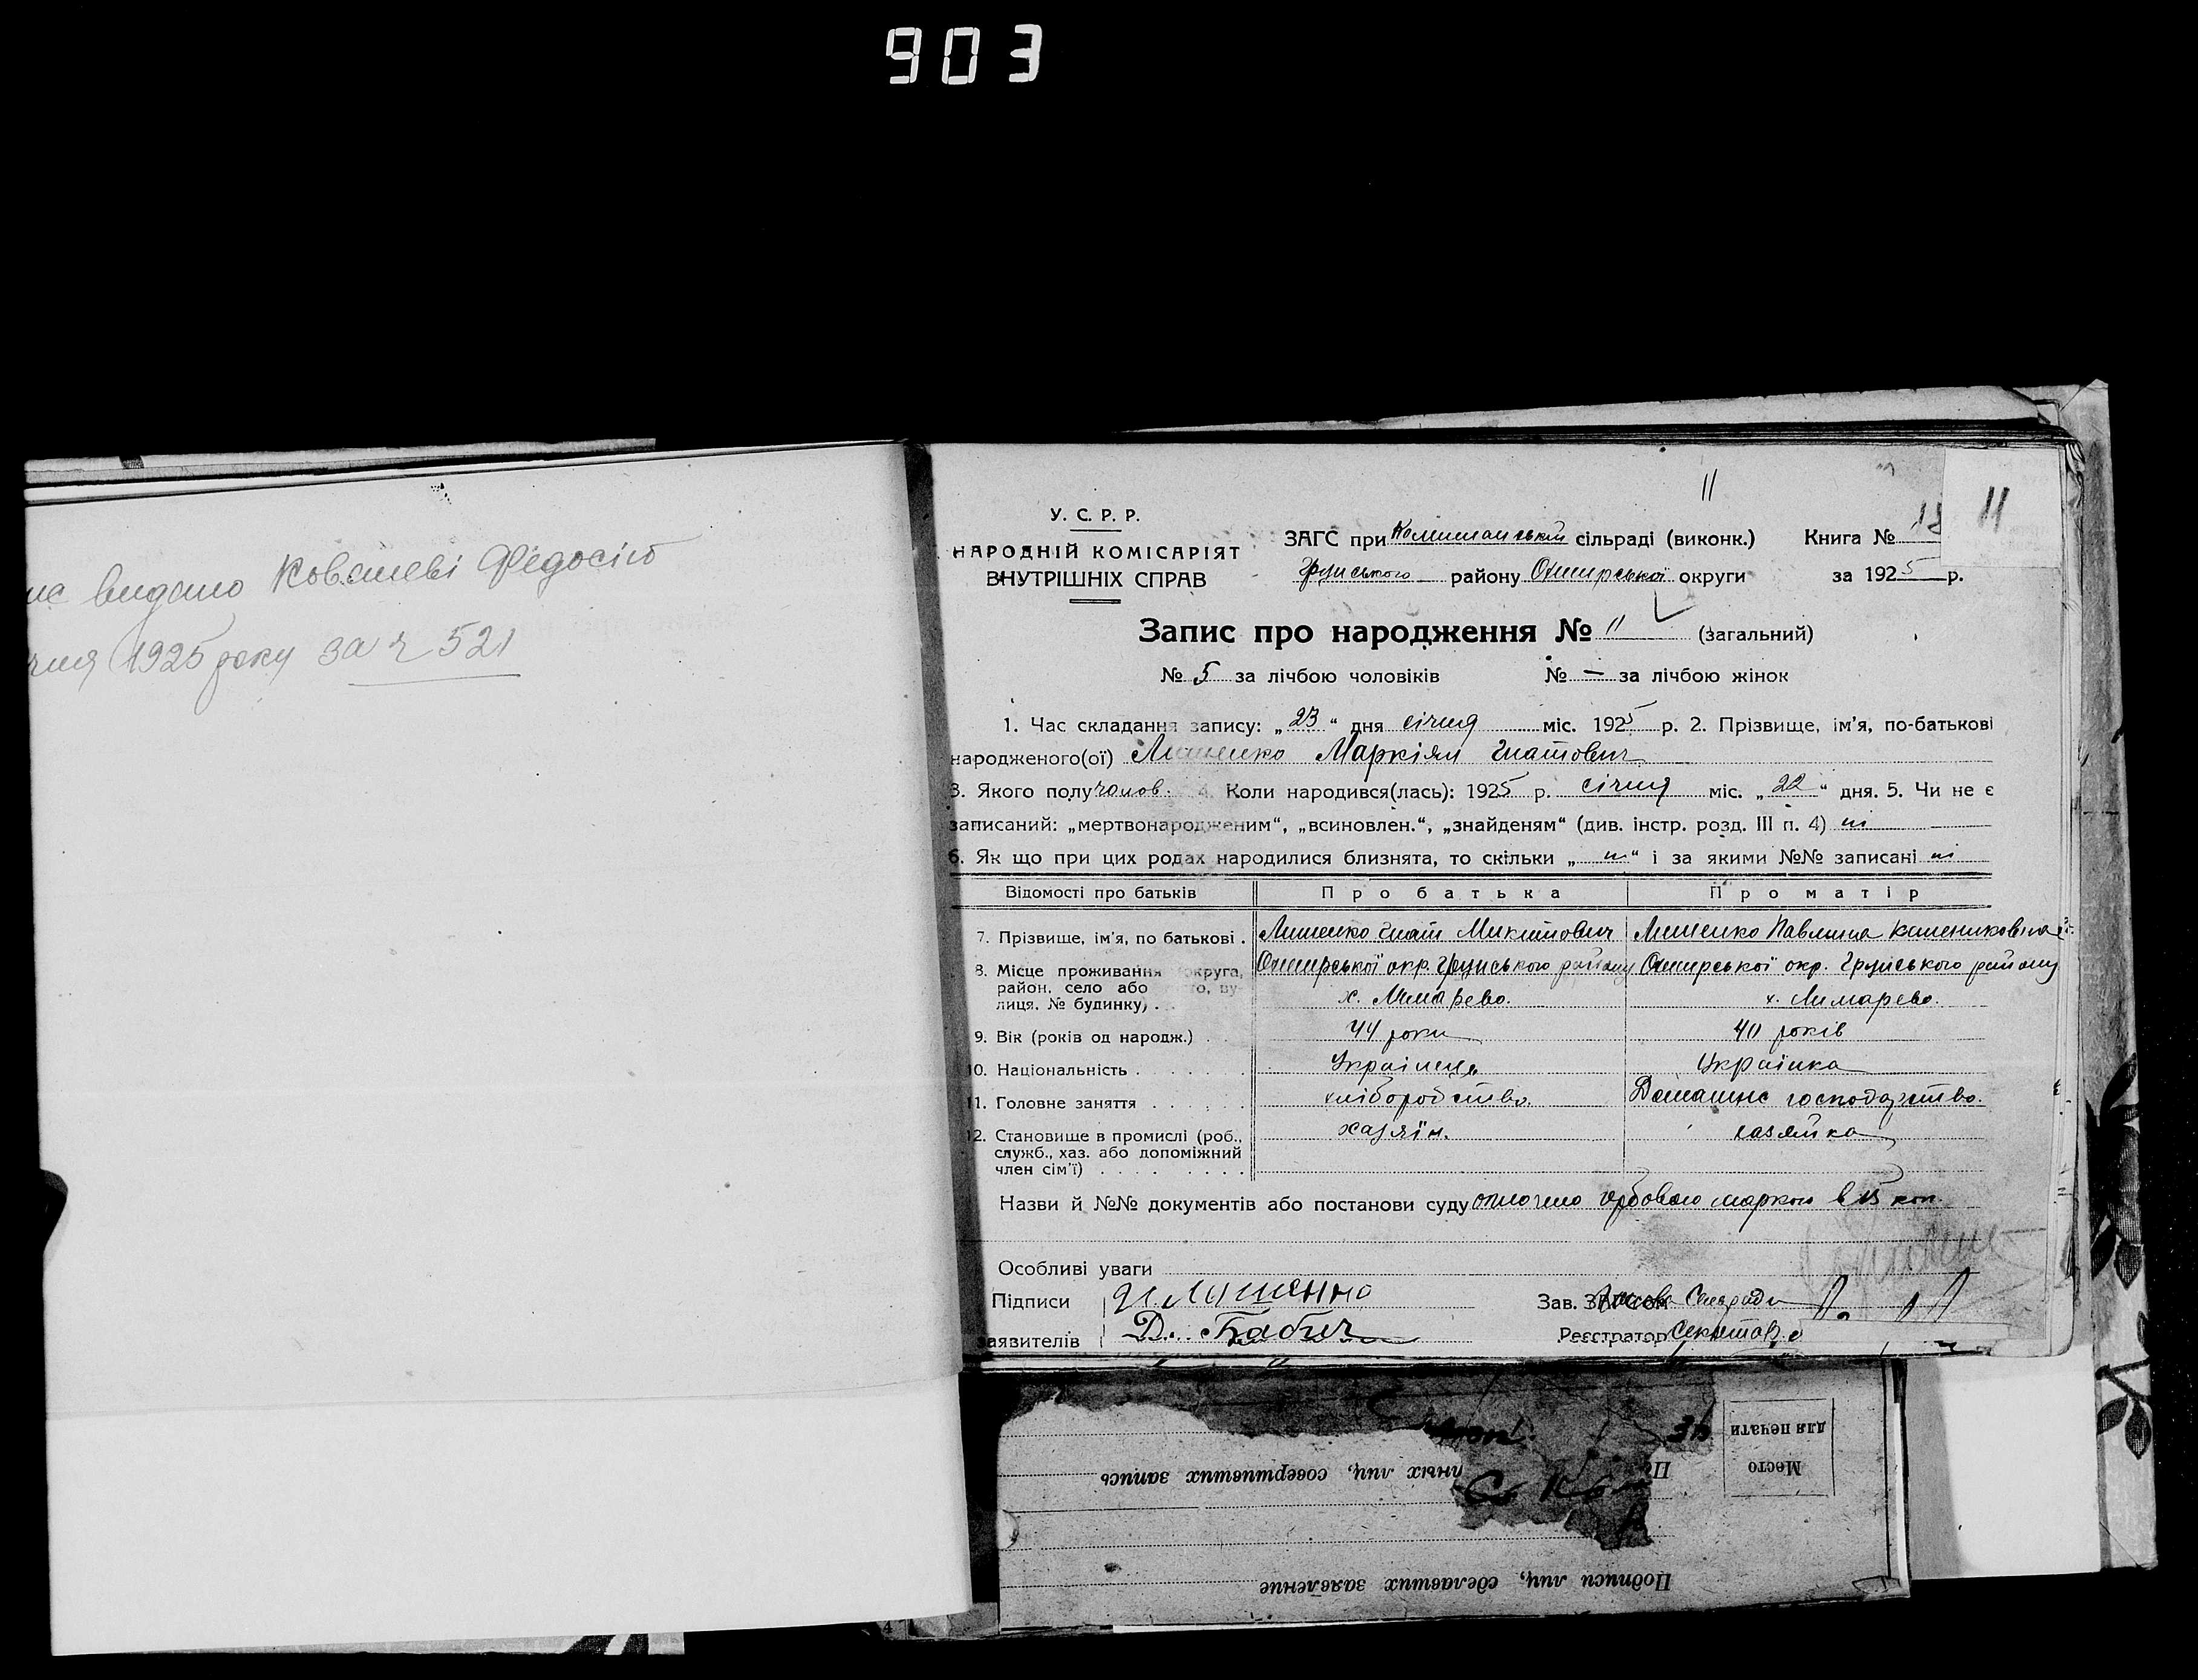 903
видано Ковалеві Федосію
1925 року за ч 521
11
11
У. С. Р. Р.
НАРОДНІЙ КОМІСАРІЯТ
ВНУТРІШНІХ СПРАВ
ЗАГС при Комишанській сільраді (виконк.) Книга №
Грунського району Охтирської округи за 1925 р.
Запис про народження № 11 (загальний)
№ 5 за лічбою чоловіків № — за лічбою жінок
1. Час складання запису: „23“ дня січня міс. 1925 р. 2. Прізвище, ім'я, по-батькові
народженого(ої) Лишенко Маркіян Гнатович
3. Якого полу чолов. 4. Коли народився(лась): 1925 р. січня міс. „22“ дня. 5. Чи не є
записаний: „мертвонародженим“, „всиновлен.“, „знайденям“ (див. інстр. розд. III п. 4) ні
6. Як що при цих родах народилися близнята, то скільки „ні“ і за якими №№ записані ні
Відомості про батьків Про батька Про матір
7. Прізвище, ім'я, по батькові . Лишенко Гнат Микитович Лишенко Павлина
8. Місце проживання округа, Охтирської окр. Грунського району Охтирської окр. Грунського району
район, село або
лиця, № будинку) . х. Лимарево. х. Лимарево.
9. Вік (років од народж.) . . 44 роки 40 років
10. Національність . . . . . . Українець Українка
11. Головне заняття . . . . . . хліборобство. Домашнє господарство.
12. Становище в промислі (роб., хазяїн. хазяйка
служб., хаз. або допоміжний
член сім'ї) . . . . . . . . .
Назви й №№ документів або постанови суду оплочено гербовою маркою в 15 коп.
Особливі уваги
Підписи Лишенко Зав. ЗАГСом Голова Сільради
заявителів Д. Бабич Реєстратор Секретар
Место
для печати
лиц, совершивших запись
Подписи лиц, сделавших заявление
4